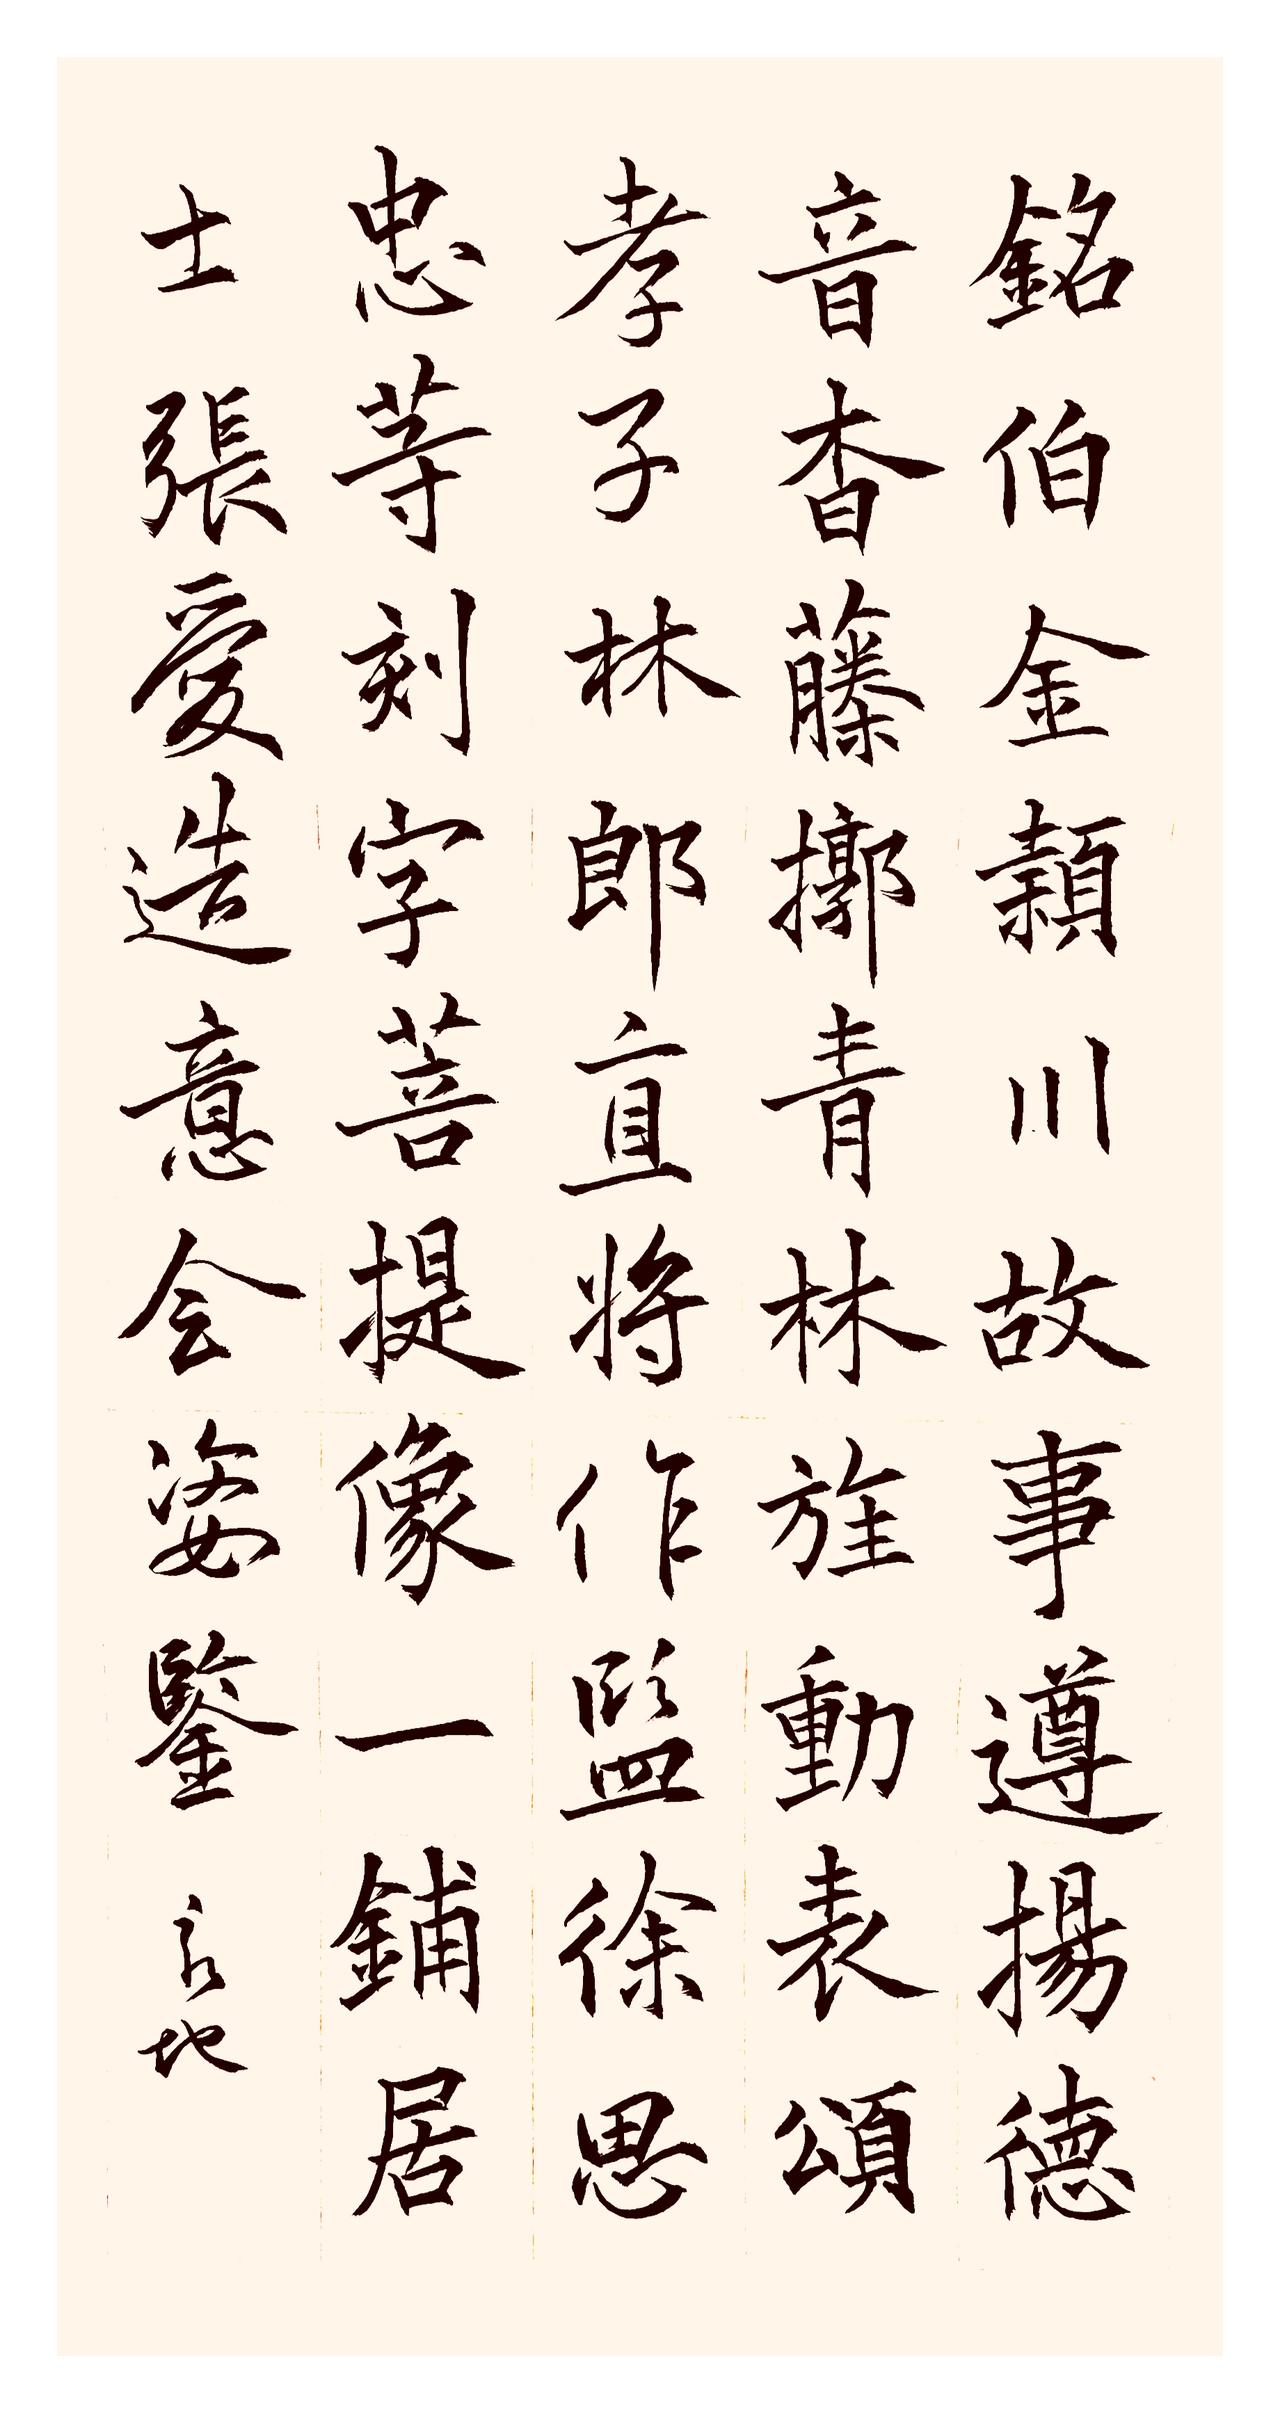 銘伯金潁川故事遵揚德
音杳藤擲青林旌動表頌
孝子林郎直將作監徐思
忠等刻字菩提像一鋪居
士張愛造意会姿鑒